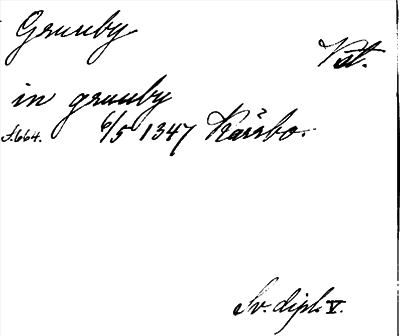 Gruuby
Vst.
in gruuby
s. 664. 6/5 1347 Karsbo.
Sv. dipl. V.